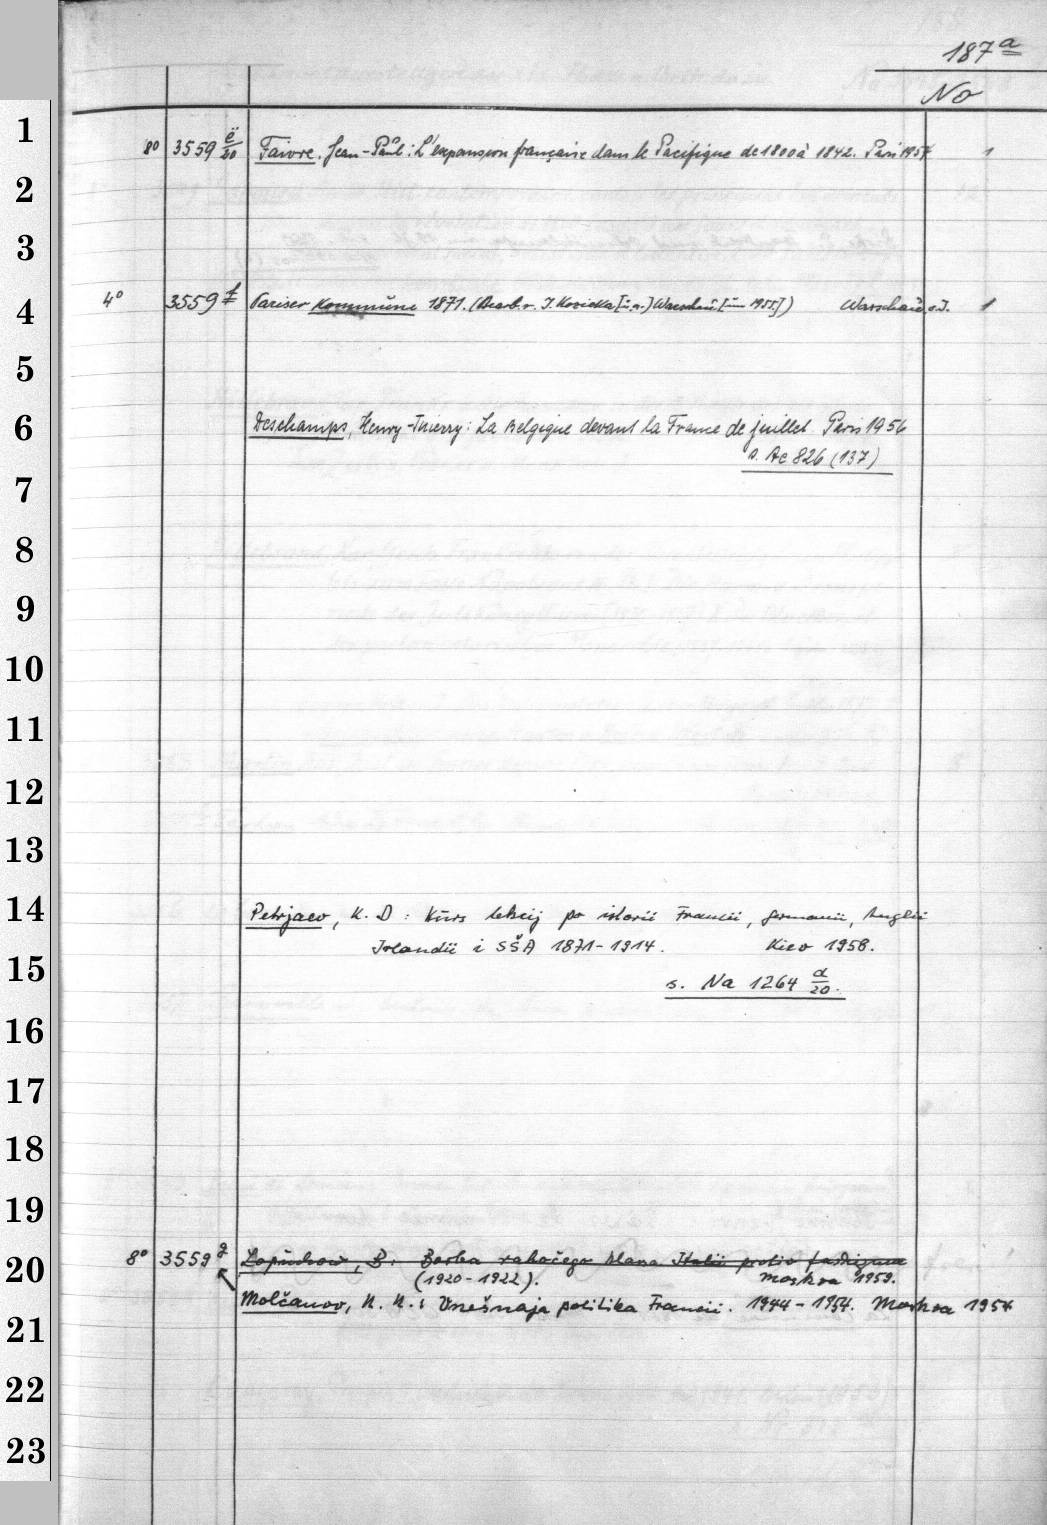 187 a
No
1
8° 3559 ë/20 Faivre, Jean-Paul: L'expansion française dans le Pacifique de 1800 à 1842. Paris 1954 1
2
3
4° 3559 f Pariser Kommune 1871. (Bearb. v. J. Kovicka [u.a.] Warschau [um 1955]) Warschau o.J. 1
4
5
6 Deschamps, Henry-Thierry: La Belgique devant la France de juillet. Paris 1956
s. Ac 826 (137)
7
8
9
10
11
12
13
14 Petrjaev, K. D: Kurs lekcij po istorii Francii, Germanii, Anglii
Irlandii i SŠA 1871-1914. Kiev 1958.
15 s. Na 1264 d/20.
16
17
18
19
8° 3559 g Lopuchov, B: Borba rabočego klassa Italii protiv fašizma
20 (1920-1922). Moskva 1959.
Molčanov, N. N.: Vnešnaja politika Francii. 1944-1954. Moskva 1957
21
22
23